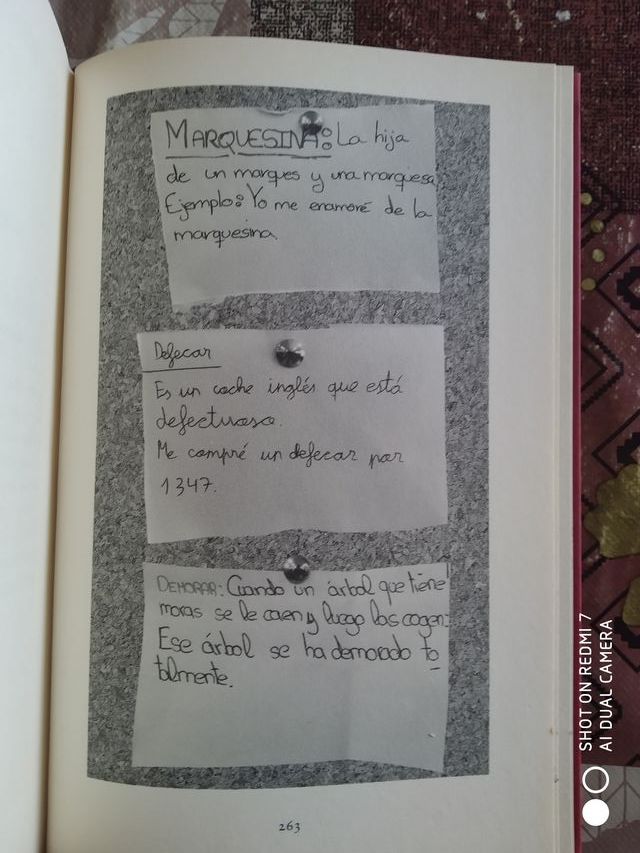 MARQUESINA: La hija
de un marques y una marquesa
Ejemplo: Yo me enamoré de la
marquesina.
Defecar
Es un coche inglés que está
defectuoso.
Me compré un defecar por
1347.
DEMORAR: Cuando un árbol que tiene
moras se le caen y luego las cogen:
Ese árbol se ha demorado to
talmente.
263
SHOT ON REDMI 7
AI DUAL CAMERA